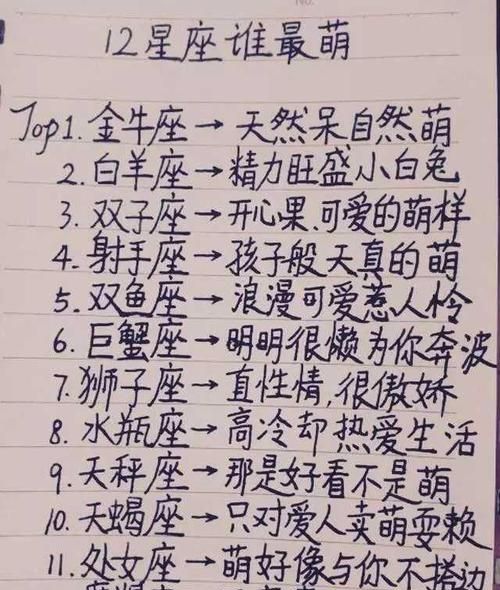 12星座谁最萌
Top1.金牛座→天然呆自然萌
2.白羊座→精力旺盛小白兔
3.双子座→开心果,可爱的萌样
4.射手座→孩子般天真的萌
5.双鱼座→浪漫可爱惹人怜
6.巨蟹座→明明很懒为你奔波
7.狮子座→直性情,很傲娇
8.水瓶座→高冷却热爱生活
9.天秤座→那是好看不是萌
10.天蝎座→只对爱人卖萌耍赖
11.处女座→萌好像与你不搭边